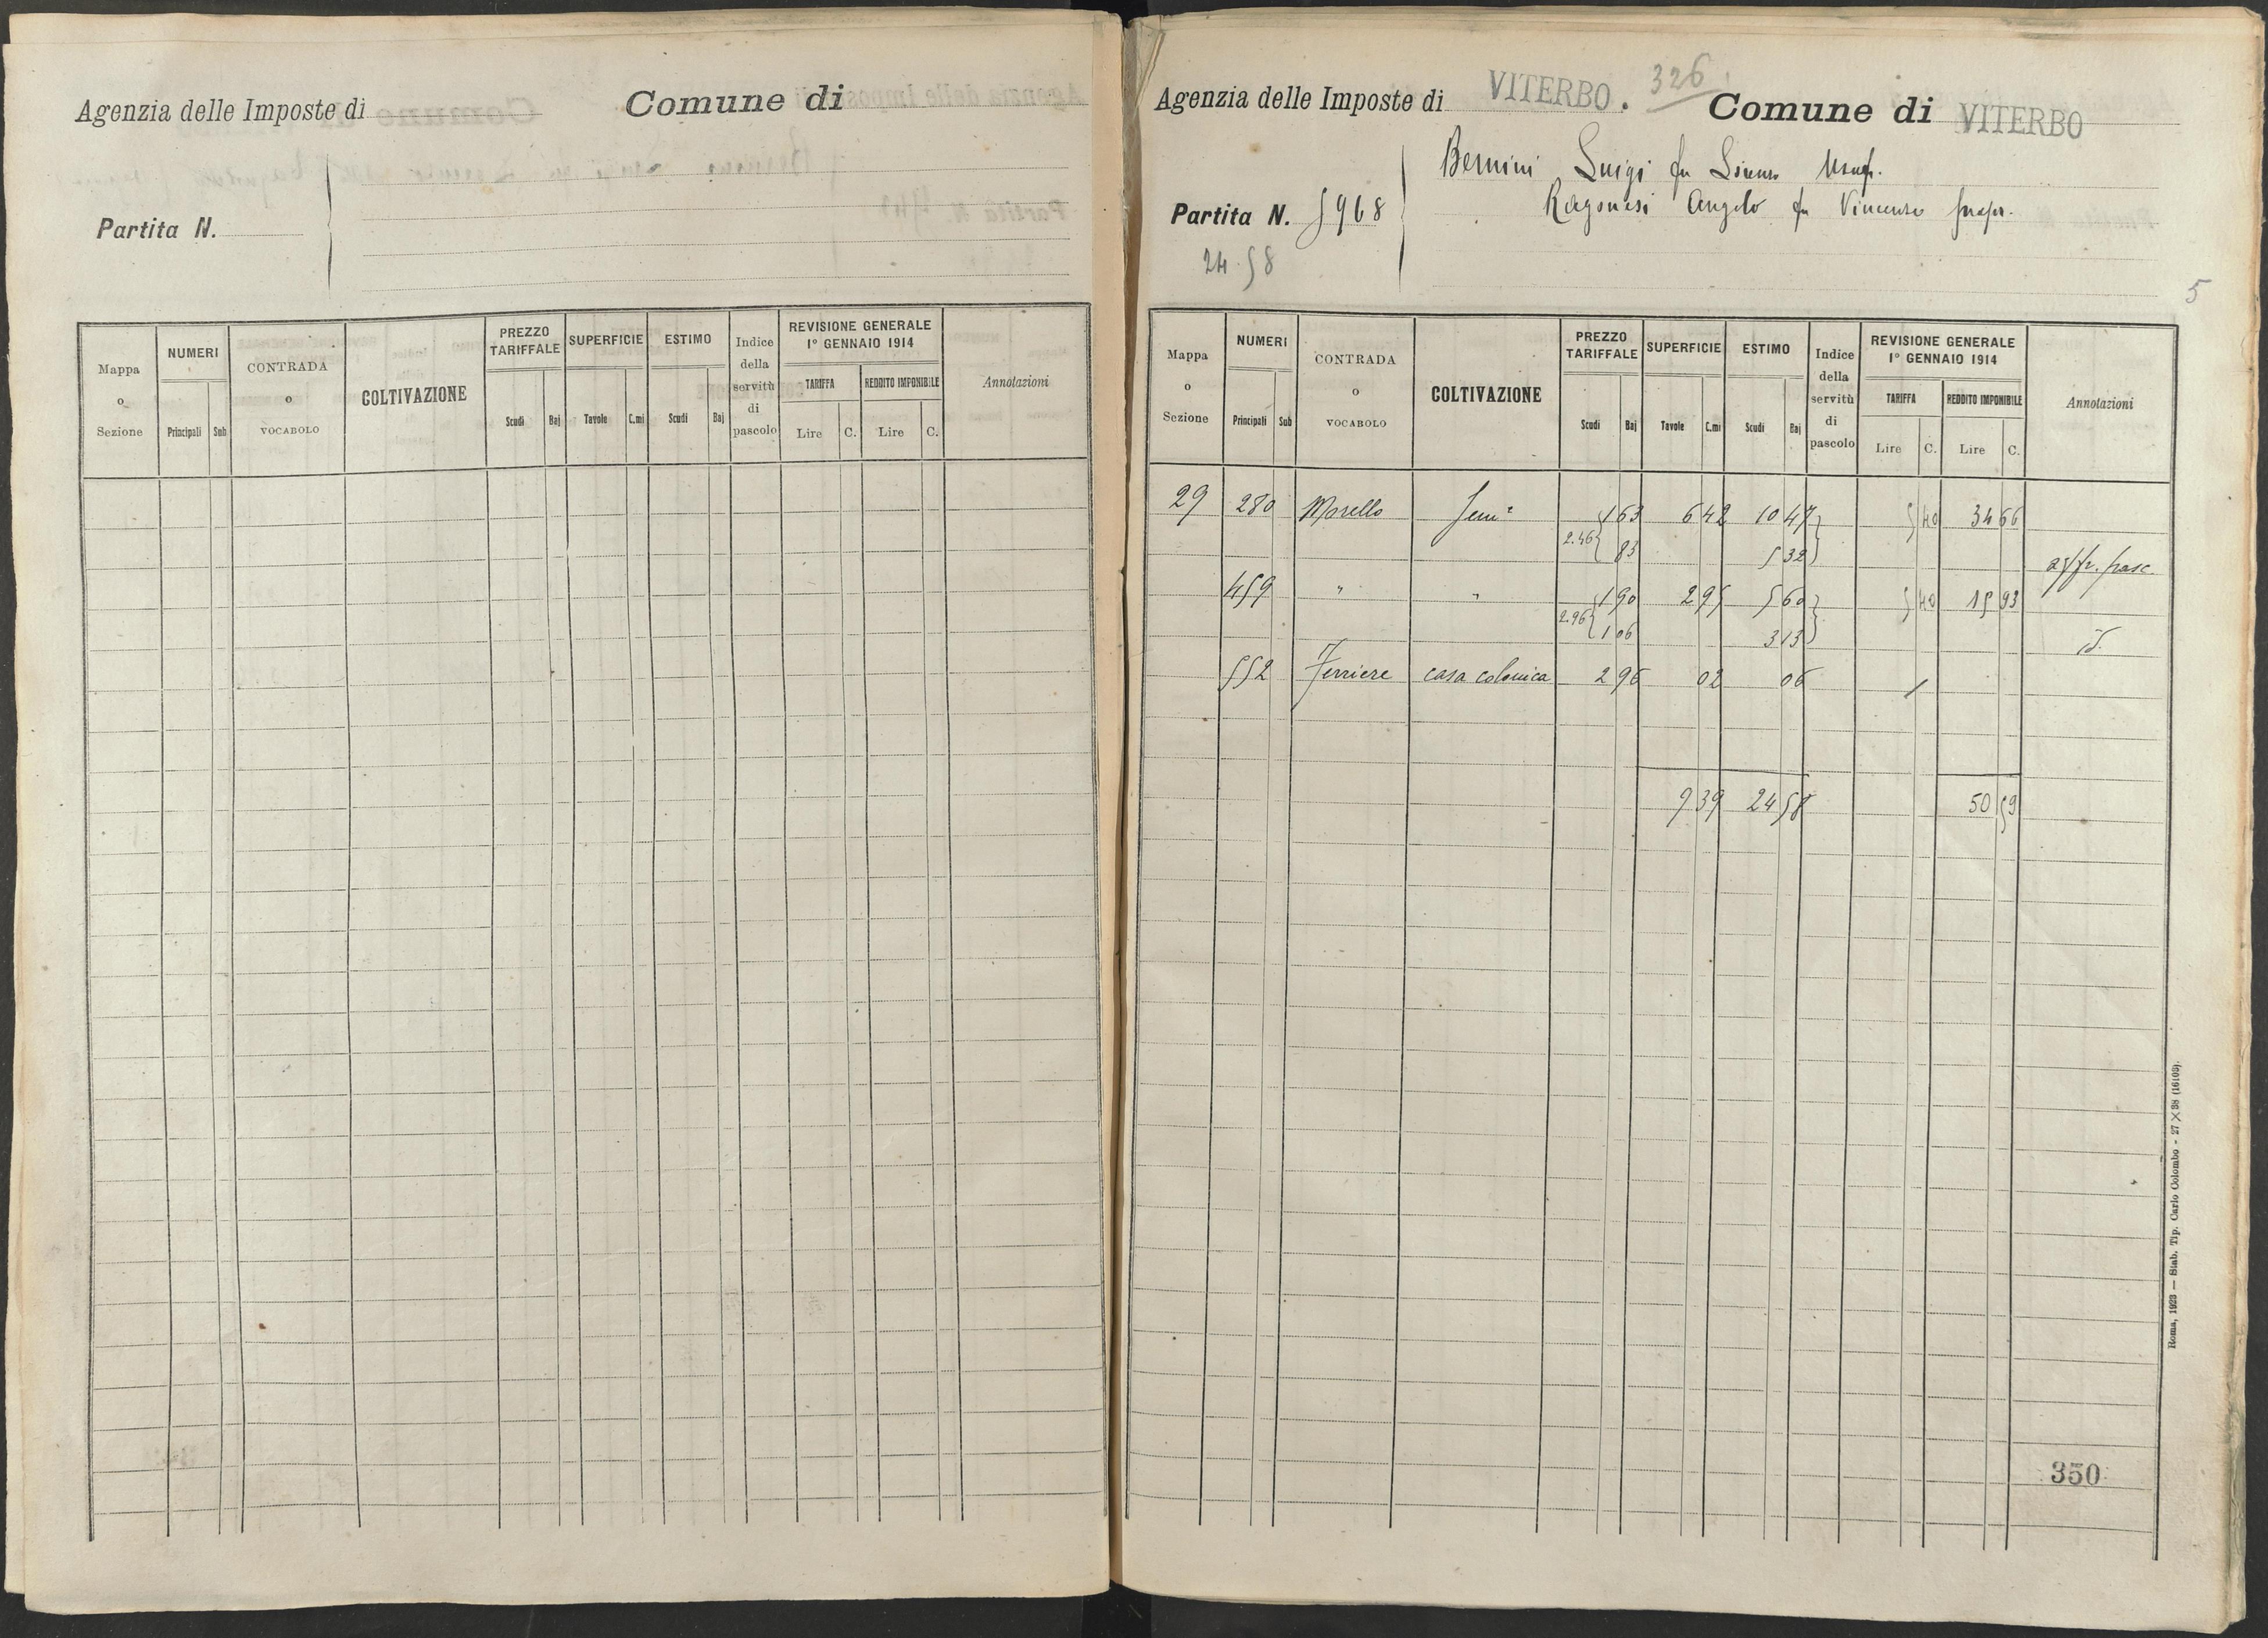 Agenzia delle Imposte di
Comune di
Partita N.
Mappa o Sezione
NUMERI
Principali
Sub
CONTRADA o VOCABOLO
COLTIVAZIONE
PREZZO TARIFFALE
Scudi
Baj
SUPERFICIE
Tavole
C.mi
ESTIMO
Scudi
Baj
Indice della servitù di pascolo
REVISIONE GENERALE
1° GENNAIO 1914
TARIFFA
Lire
C.
REDDITO IMPONIBILE
Lire
C.
Annotazioni
Agenzia delle Imposte di VITERBO.
326
Comune di VITERBO
Bernini Luigi fu Usuf.
Partita N. 5968
Ragonesi Angelo fu Vincenzo propr.
24.58
5
Mappa o Sezione
NUMERI
Principali
Sub
CONTRADA o VOCABOLO
COLTIVAZIONE
PREZZO TARIFFALE
Scudi
Baj
SUPERFICIE
Tavole
C.mi
ESTIMO
Scudi
Baj
Indice della servitù di pascolo
REVISIONE GENERALE
1° GENNAIO 1914
TARIFFA
Lire
C.
REDDITO IMPONIBILE
Lire
C.
Annotazioni
29 280 Morello Sem° 1 63 6 42 10 47 5 40 34 66
2.46 83 5 32 affr. pasc.
459 " " 1 90 2 95 5 60 5 40 15 93
2.96 1 06 3 13 id.
552 Ferriere casa colonica 2 96 02 06 /
9 39 24 58 50 59
350
Roma, 1923 — Stab. Tip. Carlo Colombo - 27 × 38 (16103).